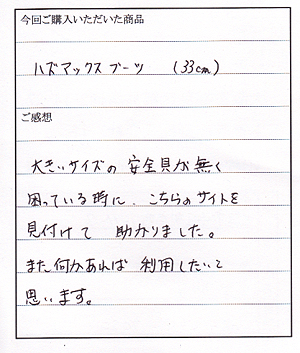 今回ご購入いただいた商品
ハズマックスブーツ (33cm)
ご感想
大きいサイズの安全具が無く
困っている時に、こちらのサイトを
見付けて 助かりました。
また何かあれば 利用したいと
思います。